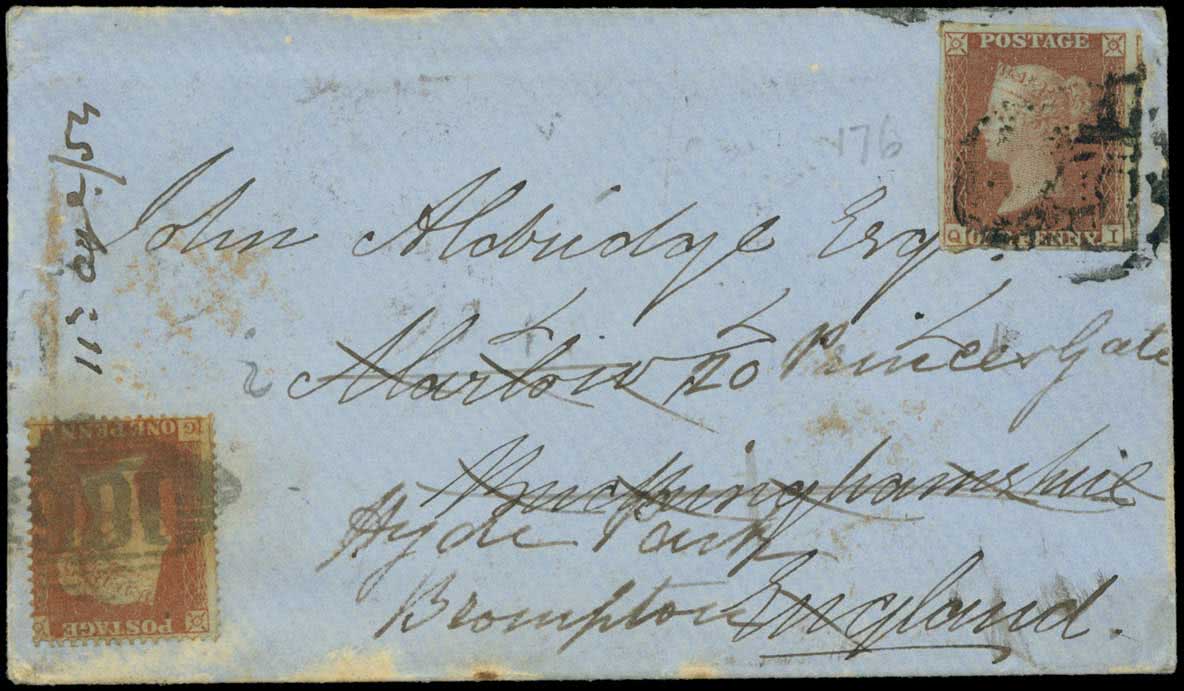 POSTAGE
Q ONE PENNY I
176
John Aldridge Esqr.
Marlow 20 Princes Gate
Buckinghamshire
Hyde Park
Brompton England.
ONE PENNY G
POSTAGE